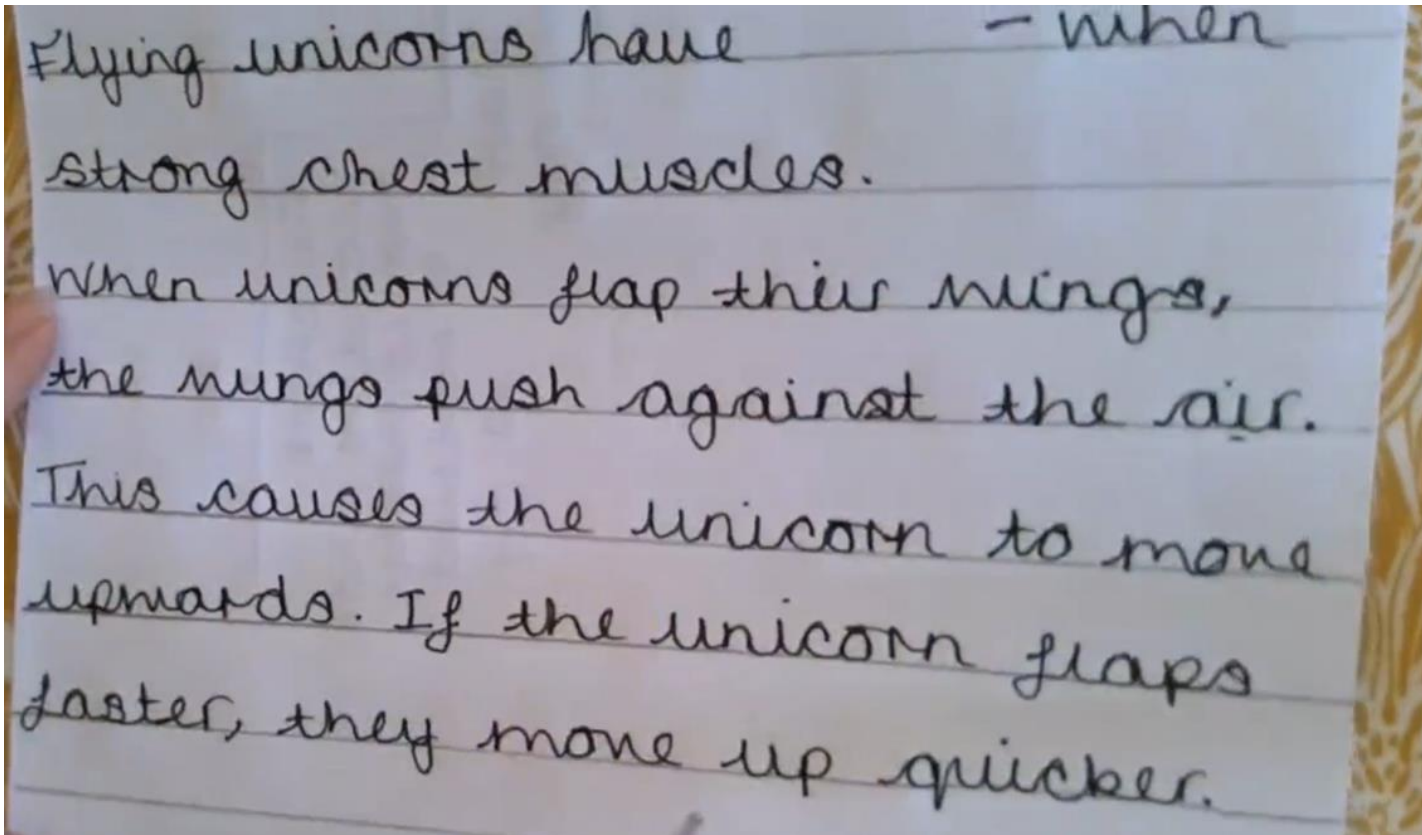 Flying unicorns have - when
strong chest muscles.
When unicorns flap their wings,
the wings push against the air.
This causes the unicorn to move
upwards. If the unicorn flaps
faster, they move up quicker.